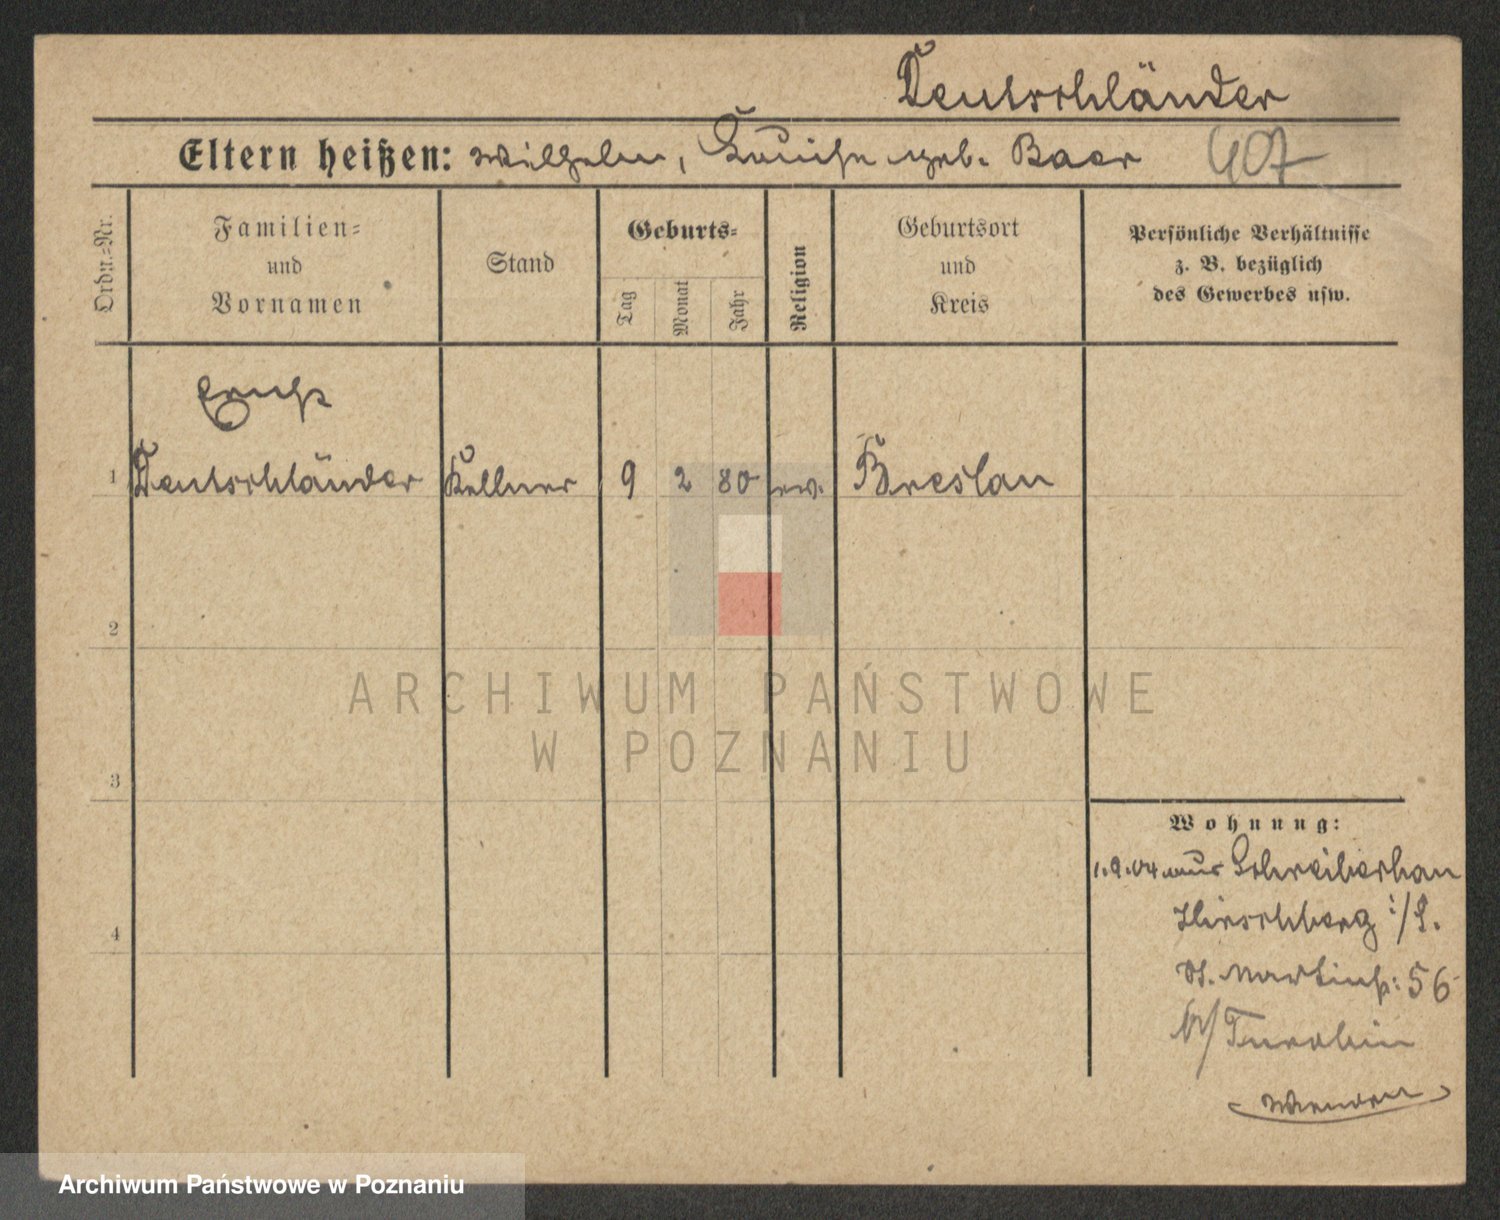 Deutschländer
Eltern heißen: Wilhelm, Louise geb. Baer 407
Ordn.-Nr.
Familien-
und
Vornamen
Stand
Geburts-
Tag
Monat
Jahr
Religion
Geburtsort
und
Kreis
Persönliche Verhältnisse
z. B. bezüglich
des Gewerbes usw.
Ernst
1 Deutschländer Kellner 9 2 80 ev. Breslau
2
3
4
Wohnung:
1.9.04 aus Schreiberhau
Hirschberg i/S.
St. Martinstr. 56
b/
wenden
ARCHIWUM PAŃSTWOWE
W POZNANIU
Archiwum Państwowe w Poznaniu